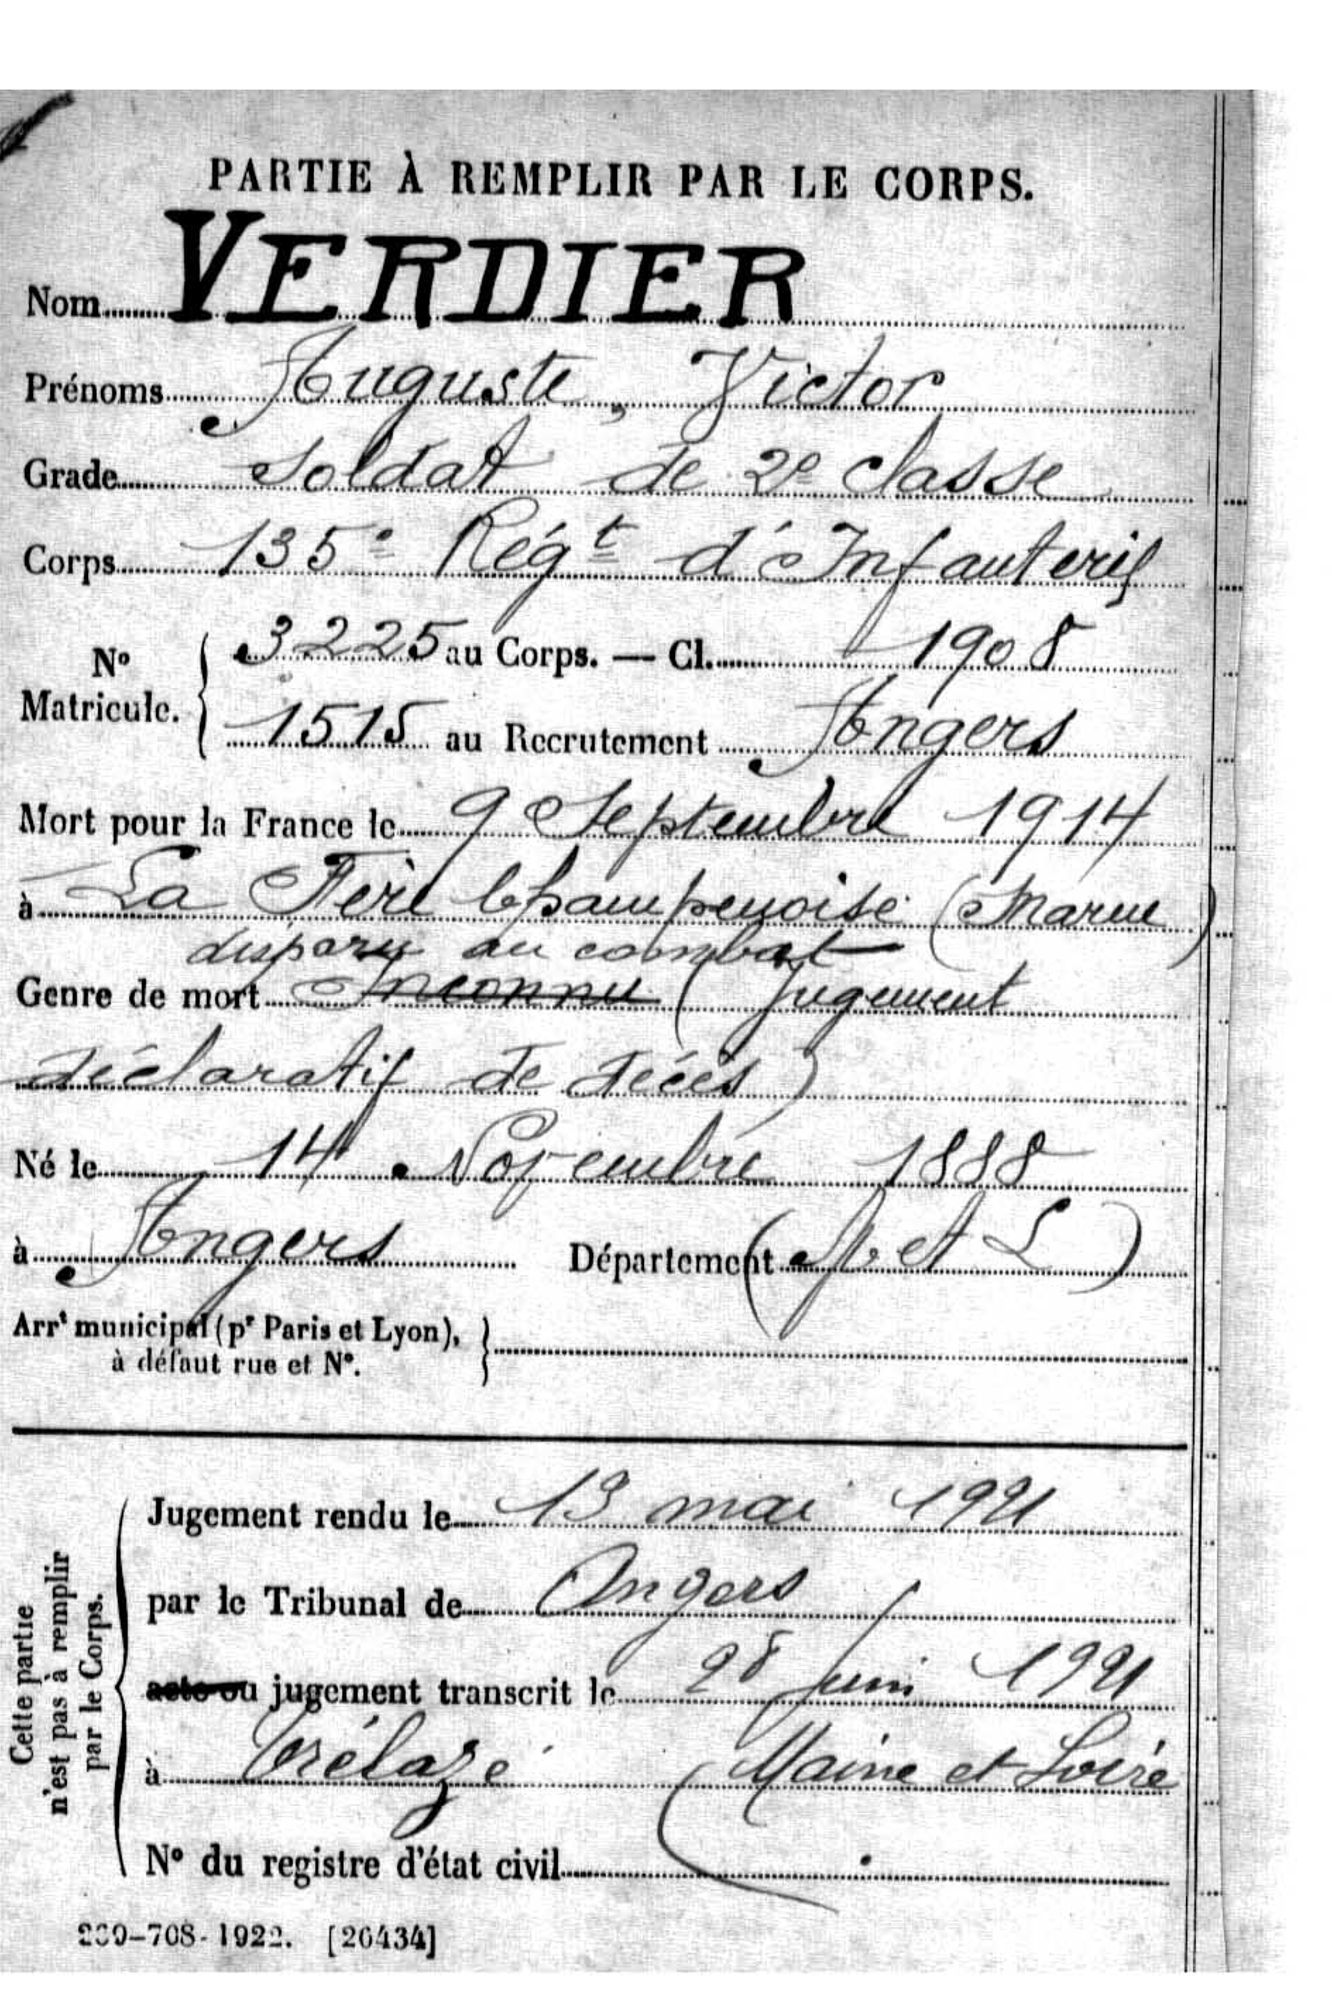 PARTIE À REMPLIR PAR LE CORPS.
Nom VERDIER
Prénoms Auguste, Victor
Grade Soldat de 2e classe
Corps 135e Régt d'Infanterie
No Matricule. { 3225 au Corps. — Cl. 1908
1515 au Recrutement Angers
Mort pour la France le 9 Septembre 1914
à La Fère Champenoise (Marne)
disparu au combat
Genre de mort Inconnu (Jugement
déclaratif de décès)
Né le 14 Novembre 1888
à Angers Département (M. et L)
Arrt municipal (pr Paris et Lyon), }
à défaut rue et No.
Cette partie
n'est pas à remplir
par le Corps.
Jugement rendu le 13 mai 1921
par le Tribunal de Angers
acte ou jugement transcrit le 28 juin 1921
à Trélazé (Maine et Loire
No du registre d'état civil
-708-1922. [26434]